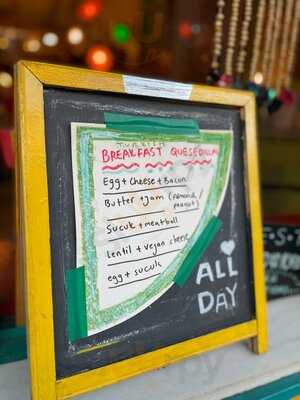 TURKISH
BREAKFAST QUESEDILLA
Egg + Cheese + Bacon
Butter + jam (
Sucuk + meatball
Lentil + vegan cheese
egg + sucuk
ALL
DAY